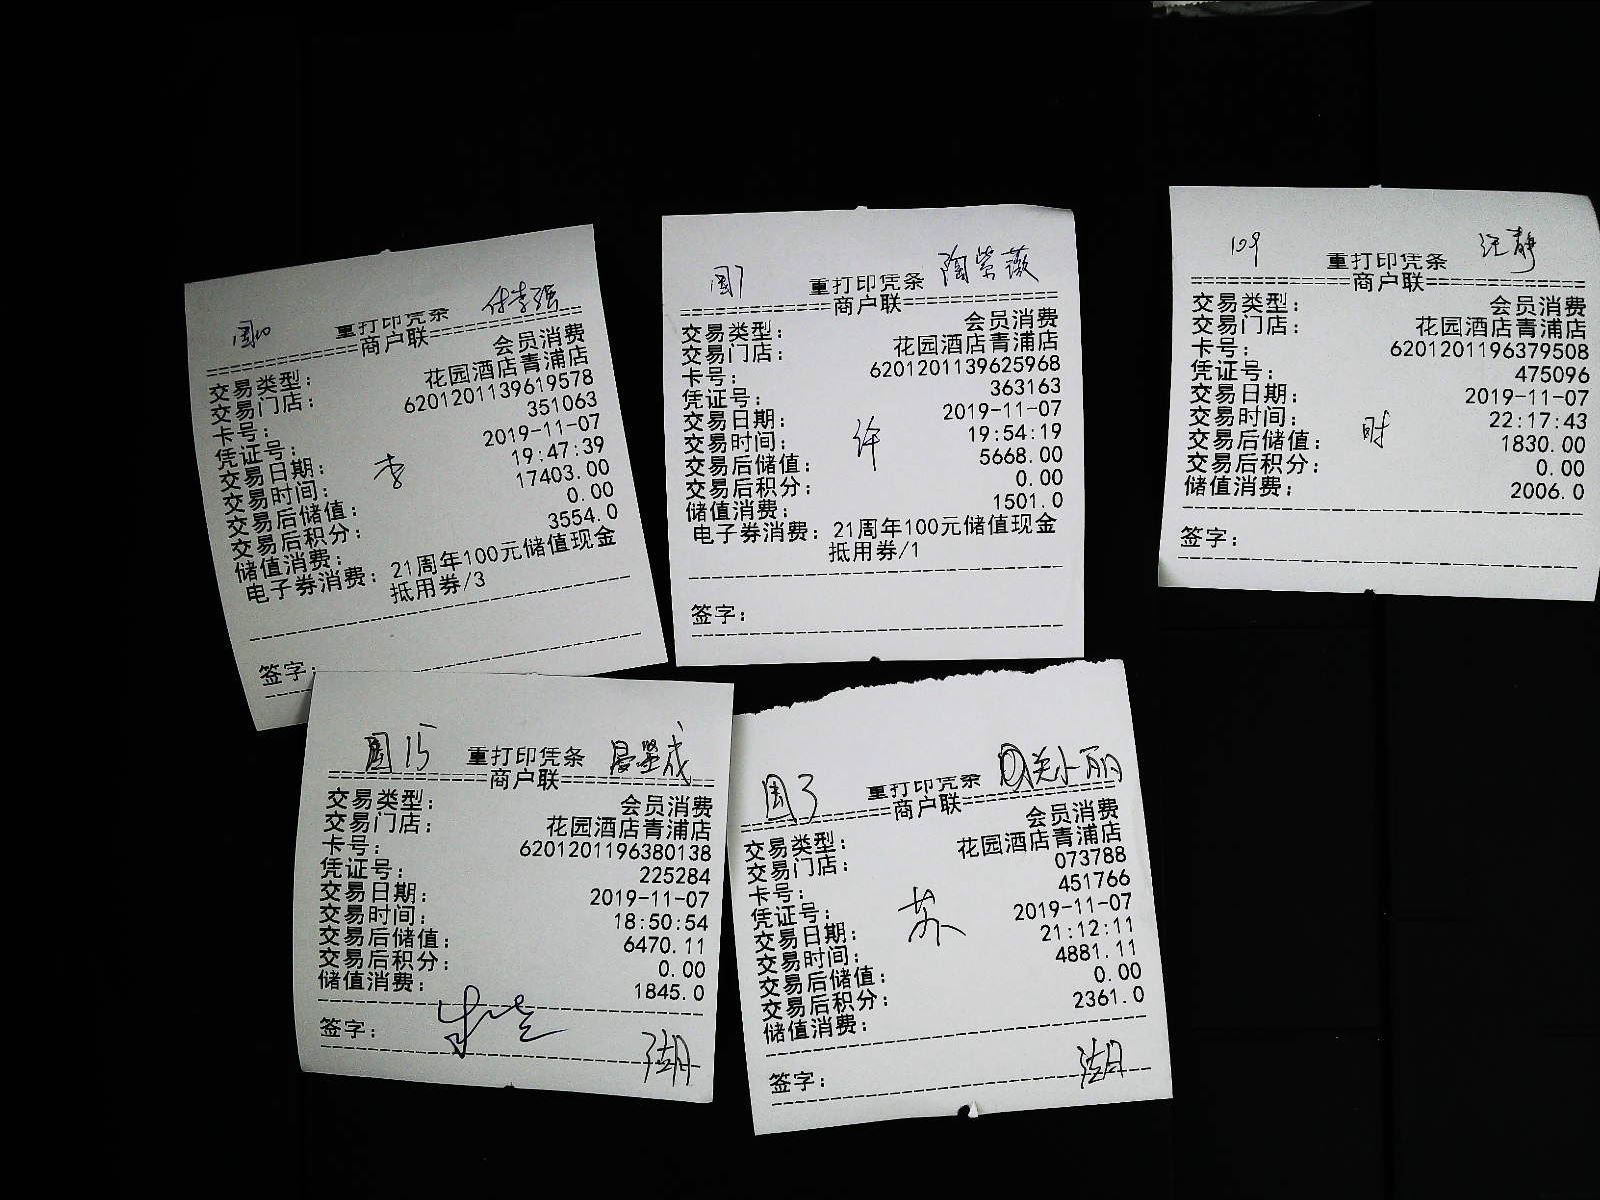 重打印凭条
商户联
交易类型： 会员消费
交易门店： 花园酒店青浦店
卡号： 6201201139619578
凭证号： 351063
交易日期： 2019-11-07
交易时间： 19:47:39
交易后储值： 17403.00
交易后积分： 0.00
储值消费： 3554.0
电子券消费： 21周年100元储值现金
抵用券/3
李
签字：
圍7 重打印凭条 陶紫薇
商户联
交易类型： 会员消费
交易门店： 花园酒店青浦店
卡号： 6201201139625968
凭证号： 363163
交易日期： 2019-11-07
交易时间： 19:54:19
交易后储值： 5668.00
交易后积分： 0.00
储值消费： 1501.0
电子券消费： 21周年100元储值现金
抵用券/1
许
签字：
109 重打印凭条 汪静
商户联
交易类型： 会员消费
交易门店： 花园酒店青浦店
卡号： 6201201196379508
凭证号： 475096
交易日期： 2019-11-07
交易时间： 22:17:43
交易后储值： 1830.00
交易后积分： 0.00
储值消费： 2006.0
时
签字：
15 重打印凭条
商户联
交易类型： 会员消费
交易门店： 花园酒店青浦店
卡号： 6201201196380138
凭证号： 225284
交易日期： 2019-11-07
交易时间： 18:50:54
交易后储值： 6470.11
交易后积分： 0.00
储值消费： 1845.0
签字：
3 重打印凭条 关小丽
商户联
交易类型： 会员消费
交易门店： 花园酒店青浦店
卡号： 073788
凭证号： 451766
交易日期： 2019-11-07
交易时间： 21:12:11
交易后储值： 4881.11
交易后积分： 0.00
储值消费： 2361.0
苏
签字：